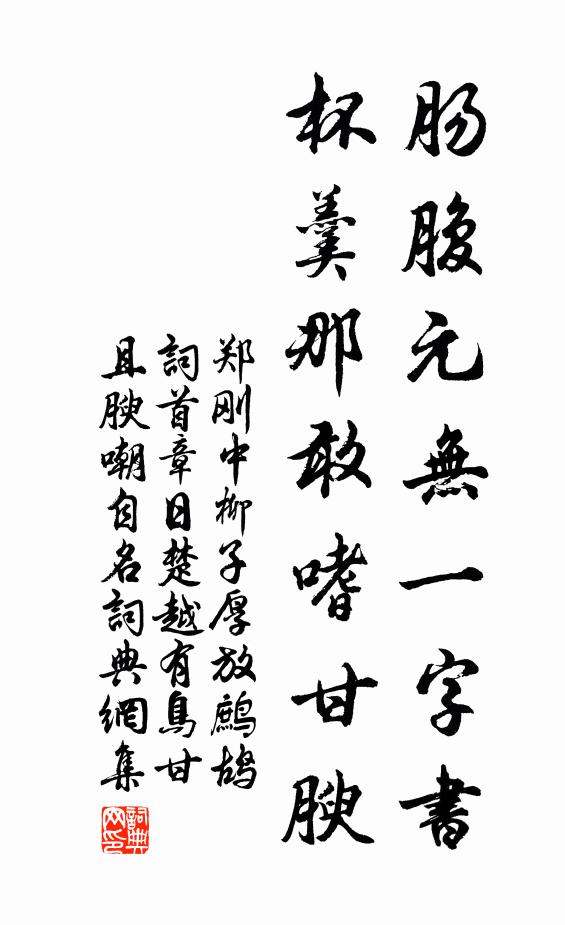 肠腹元無一字書
杯羹那敢嗜甘腴
郑刚中柳子厚放鷓鴣
詞首章日楚越有鳥甘
且腴嘲自名詞典網集
詞典网印